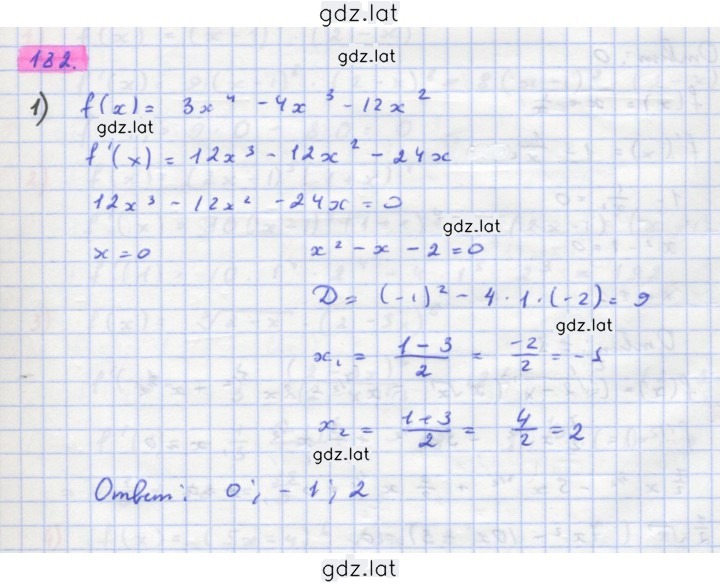 gdz.lat
182.
gdz.lat
1) f(x) = 3x⁴ - 4x³ - 12x²
gdz.lat
f'(x) = 12x³ - 12x² - 24x
12x³ - 12x² - 24x = 0
gdz.lat
x = 0 x² - x - 2 = 0
D = (-1)² - 4 · 1 · (-2) = 9
gdz.lat
x₁ = (1 - 3)/2 = -2/2 = -1
x₂ = (1 + 3)/2 = 4/2 = 2
gdz.lat
Ответ: 0; -1; 2
gdz.lat